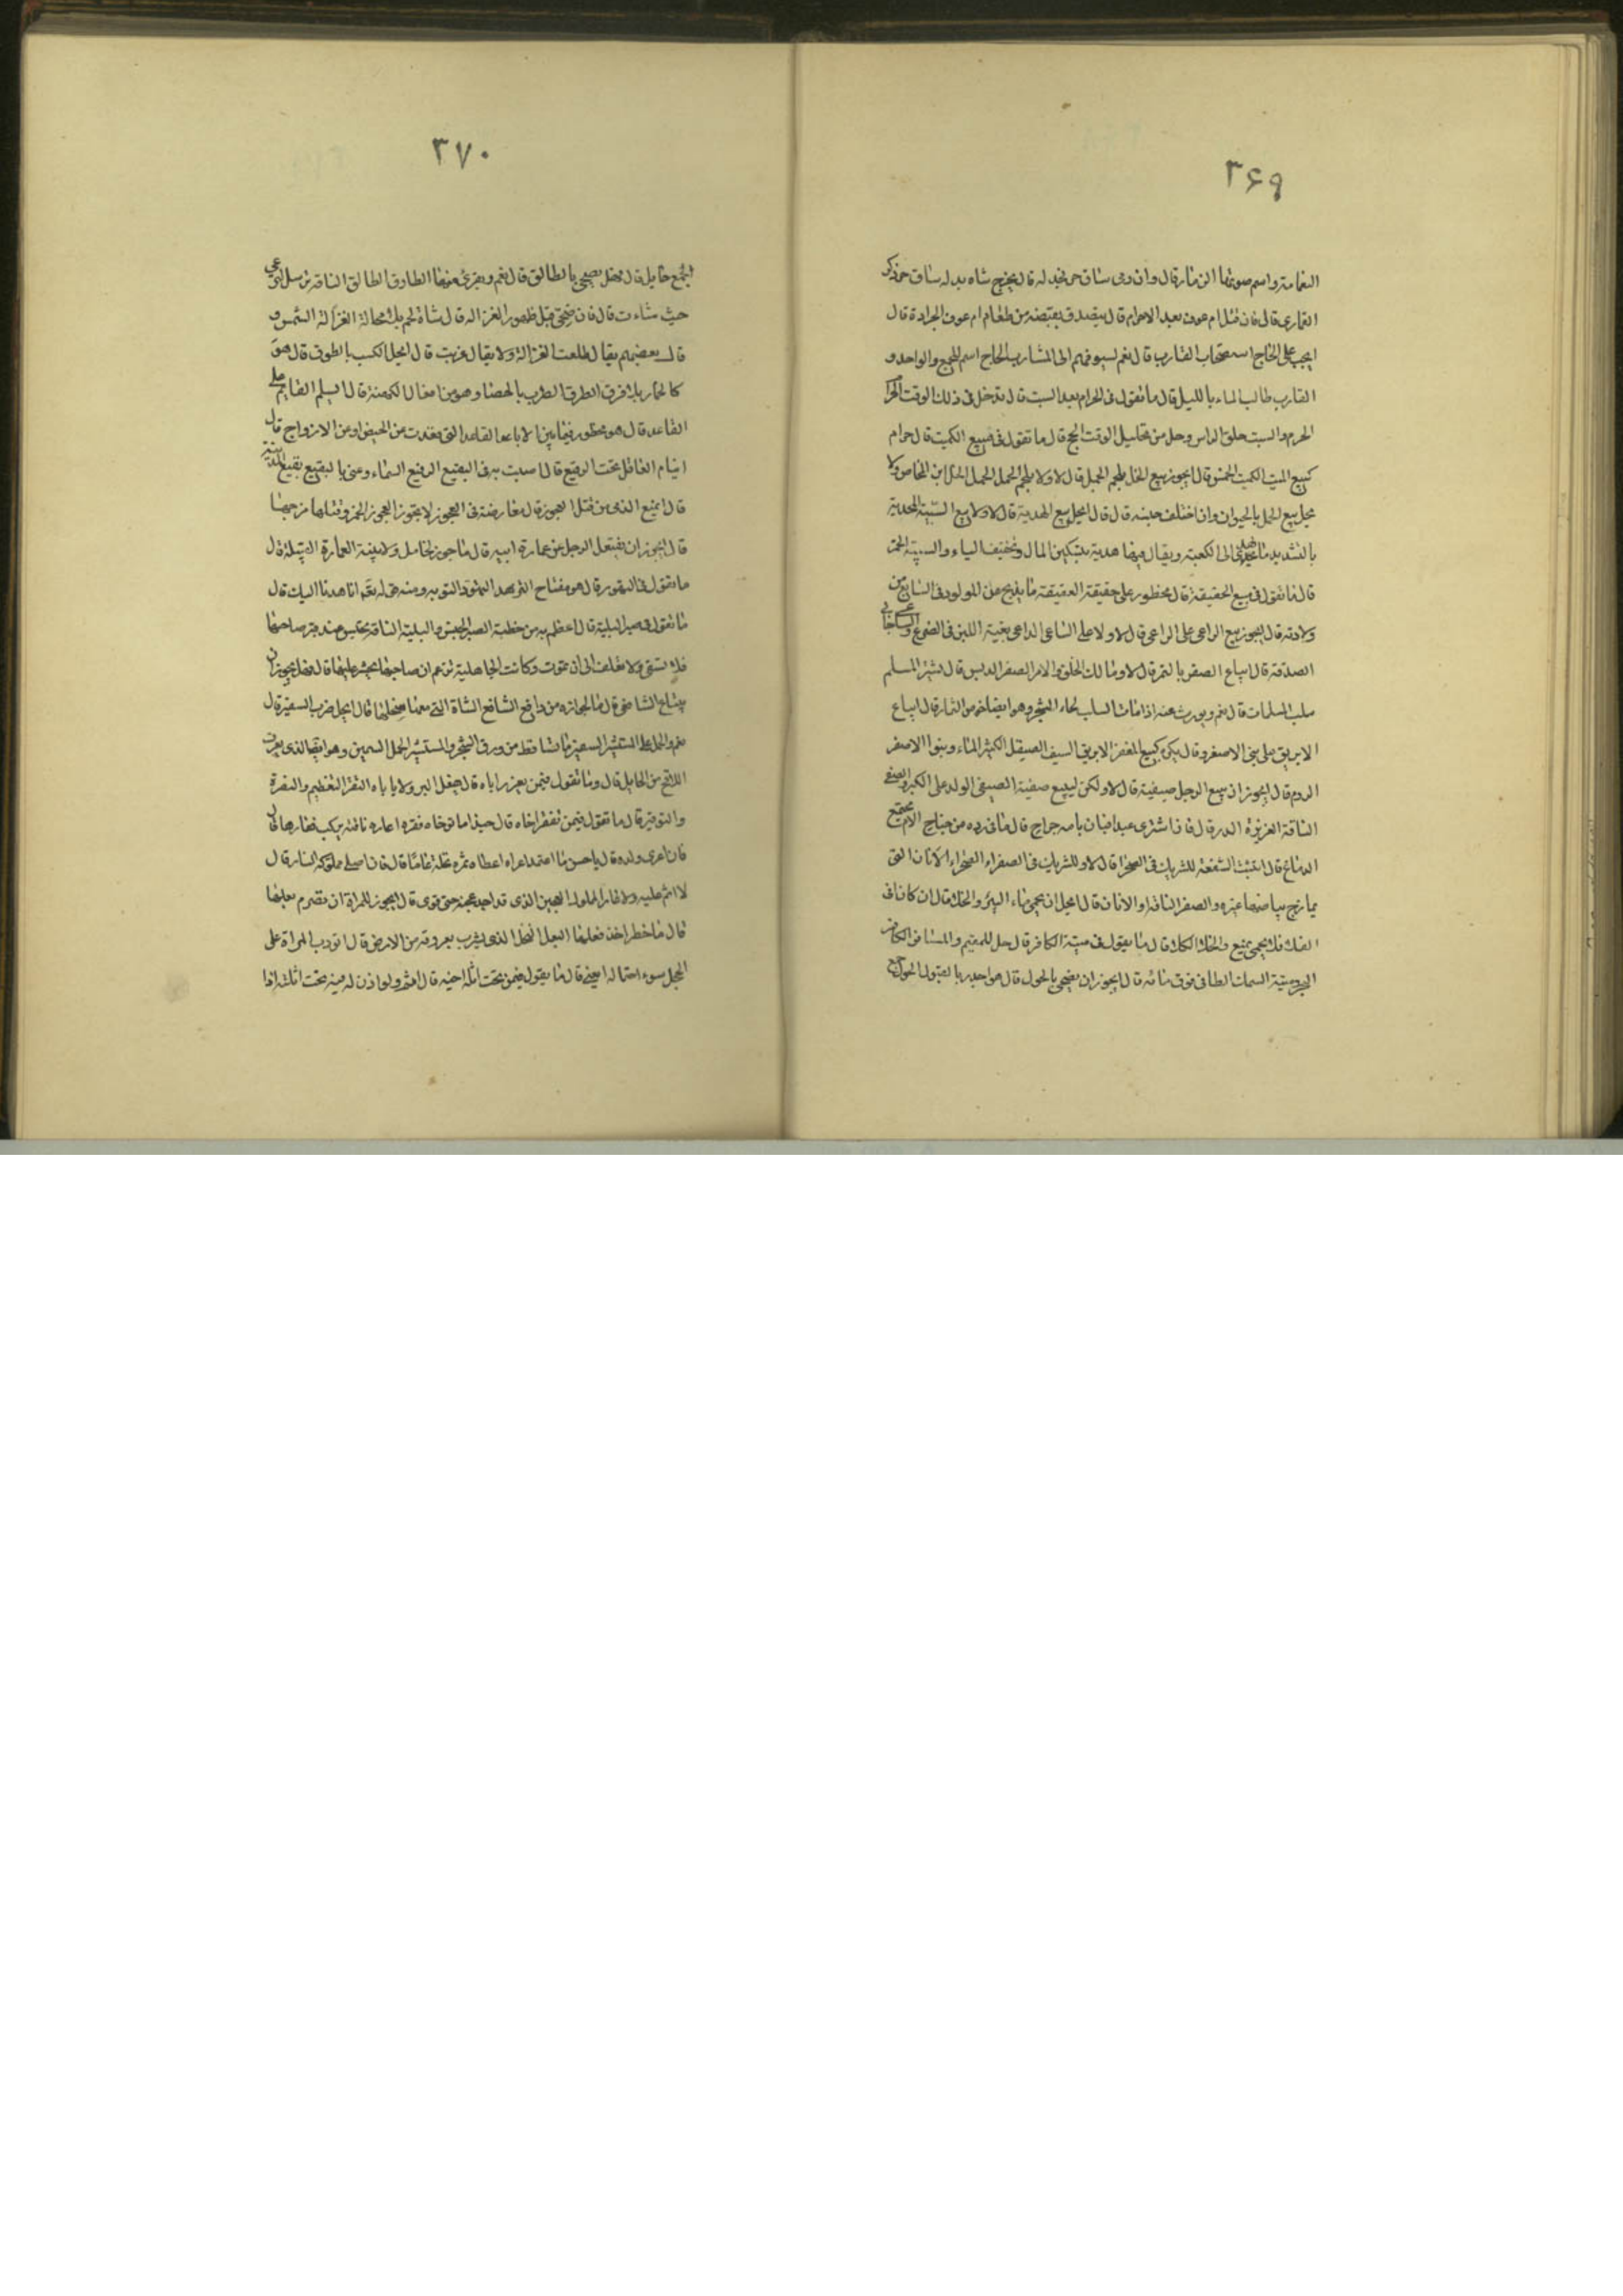 ۳۶۹
النعامة واسم صوتها الزمار قال وان رمى ساق حر فجدله قال يخرج شاه بدله ساق حر ذكر
القمارى قال فان قتل ام عوف بعد الاحرام قال يتصدق بقبضة من طعام ام عوف الجرادة قال
ايجب على الحاج استصحاب القارب قال نعم ليسوقهم الى المشارب الحاج اسم للجمع والواحد و
القارب طالب الماء بالليل قال ما تقول فى الحرام بعد السبت قال قد حل فى ذلك الوقت الحرام
المحرم والسبت حلق الراس وحل من تحليل الوقت الحج قال ما تقول فى بيع الكميت قال حرام
كبيع الميت الكميت الخمر قال ايجوز بيع الخل بلحم الجمل قال لا ولا بلحم الحمل الخل ابن المخاض ولا
يحل بيع اللحم بالحيوان وان اختلف جنسه قال ايحل بيع الهدية قال لا ولا بيع السبية الهدية
بالتشديد ما يهدى الى الكعبة ويقال فيها هدية بتسكين الدال وتخفيف الياء والسبية الخمر
قال ما تقول فى بيع العقيقة قال محظور على الحقيقة العقيقة ما يذبح عن المولود فى السابع من
ولادته قال ايجوز بيع الداعى على الراعى قال لا ولا على الساعى الداعى بقية اللبن فى الضرع والساعى جابى
الصدقة قال ايباع الصقر بالتمر قال لا ومالك الخلق والامر الصقر الدبس قال ايشترى المسلم
سلب المسلمات قال نعم ويورث عنه اذا مات السلب لحاء الشجر وهو ايضا خوص الثمار قال ايباع
الابريق على بنى الاصفر قال يكره كبيع المغفر الابريق السيف الصقيل الكثير الماء وبنو الاصفر
الروم قال ايجوز ان يبيع الرجل صيفيه قال لا ولكن ليبيع صفيه الصيفى الولد على الكبر والصفى
الناقة الغزيرة الدر قال فان اشترى عبدا فبان بامه جراح قال ما فى رده من جناح الام مجتمع
الدماغ قال اتثبت الشفعة للشريك فى الصحراء قال لا ولا للشريك فى الصفراء الصحراء الاتان التى
يمازج بياضها غبره والصفراء الناقة قال ايحل ان يحمى ماء البئر والخلا قال ان كانا فى
الفلا فلا يحمى يمنع والخلا الكلا قال ما تقول فى ميتة الكافر قال حل للمقيم والمسافر الكافر
البحر وميتة السمك الطافى فوق مائه قال ايجوز ان يضحى بالحول قال هو اجدر بالقبول الحول جمع
۳۷۰
الجمع حايل قال فهل يضحى بالطالق قال نعم ويقرى منها الطارق الطالق الناقة ترسل ترعى
حيث شاءت قال فان ضحى قبل ظهور الغزالة قال شاة لحم بلا محالة الغزالة الشمس و
قال بعضهم يقال طلعت الغزالة ولا يقال غربت قال ايحل التكسب بالطرق قال هو
كالقمار بلا فرق الطرق الضرب بالحصا وهو من افعال الكهنة قال ايسلم القايم على
القاعد قال هو محظور فيما بين الاباعد القاعد التى قعدت عن الحيض او عن الازواج قال
اينام العاقل تحت الرقيع قال احبب به فى البقيع الرقيع السماء وعنى بالبقيع بقيع المدينة
قال ايمنع الذمى من قتل العجوز قال معارضته فى العجوز لا يجوز العجوز الخمر وقتلها مزجها
قال ايجوز ان ينتقل الرجل عن عمارة ابيه قال ما جوز لخامل ولا نبيه العمارة القبيلة قال
ما تقول فى التهود قال هو مفتاح التزهد التهود التوبة ومنه قوله تعه انا هدنا اليك قال
ما تقول فى صبر البلية قال اعظم به من خطية الصبر الحبس والبلية الناقة تحبس عند قبر صاحبها
فلا تسقى ولا تعلف الى ان تموت وكانت الجاهلية تزعم ان صاحبها يحشر عليها قال فهل يجوز ان
قال ما تقول فيمن يعزر اباه قال يفعل البر ولا ياباه التعزير التعظيم والنصرة
والتوقير قال ما تقول فيمن افقر اخاه قال حبذا ما توخاه افقره اعاره ناقة يركب فقارها قال
فان اعرى ولده قال يا حسن ما اعتمد اعراه اعطاه ثمرة نخلة عاما قال فان اصلى مملوكه النار قال
لا اثم عليه ولا عار المملوك العجين الذى قد اجيد عجنه حتى قوى قال ايجوز للمراة ان تصرم بعلها
قال ما حظر احد فعلها البعل النخل الذى يشرب بعروقه من الارض قال اتودب المراة على
الخجل سوء احتمال الغنى قال ما تقول فيمن نحت اثلة اخيه قال اثم ولو اذن له فيه نحت اثلته اذا